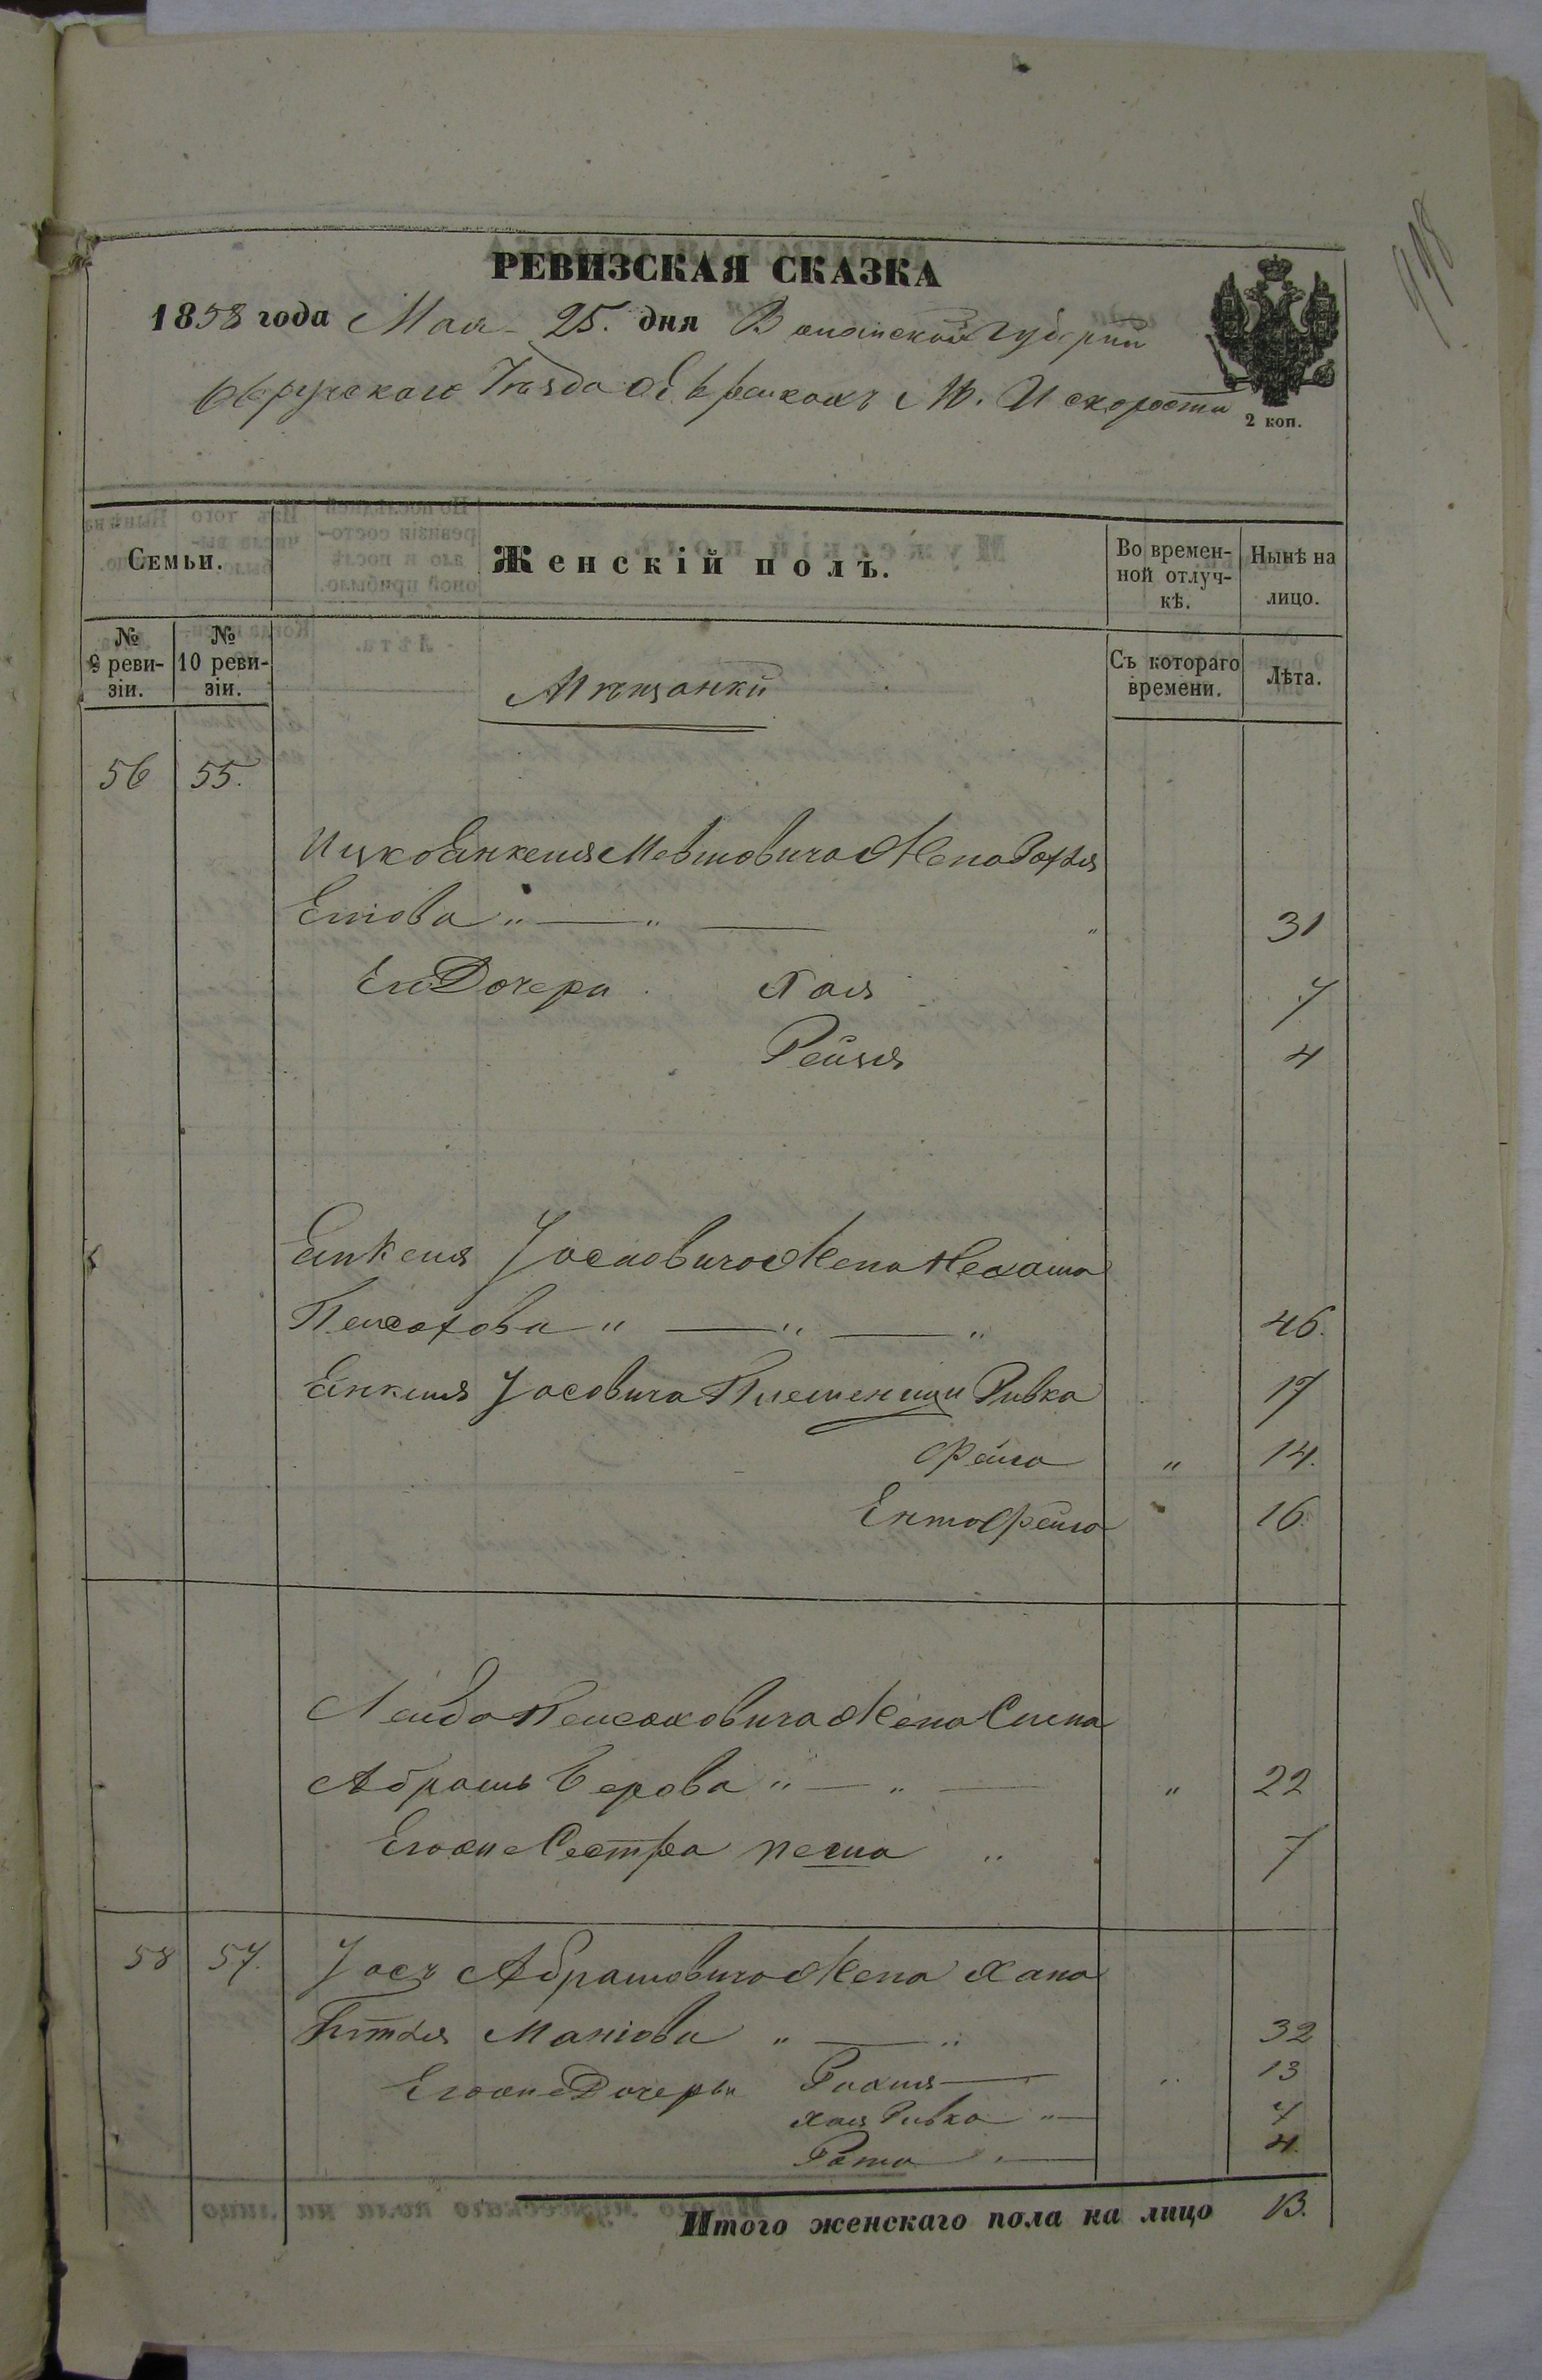 РЕВИЗСКАЯ СКАЗКА
1858 года Мая 25. дня Волынской Губерніи
Овручскаго Уѣзда о Евреяхъ М. Искорости
2 коп.
Семьи.
Женскій полъ.
Во времен-
ной отлуч-
кѣ.
Нынѣ на
лицо.
№
9 реви-
зіи.
№
10 реви-
зіи.
Съ котораго
времени.
Лѣта.
Мѣщанки
56 55.
Ицко Янкеля Мошковича Жена Рохля
" " " 31
Ея Дочери Хая 7
Рейзя 4
Янкеля Іосиовича Жена Нехама
Пейсахова " " " 46.
Янкеля Іосовича Племенници Ривка 17
Фейга " 14.
Ента Фейга 16.
Лейба Пейсаховича Жена Слима
Абрамъ Берова " " " 22
Егоже Сестра Песиа " 7
58 57. Іосъ Абрамовича Жена Хана
Гитля Маніова " " 32
Егоже Дочеры Рахиля " 13
Хая Ривка " 7
4.
Итого женскаго пола на лицо 13.